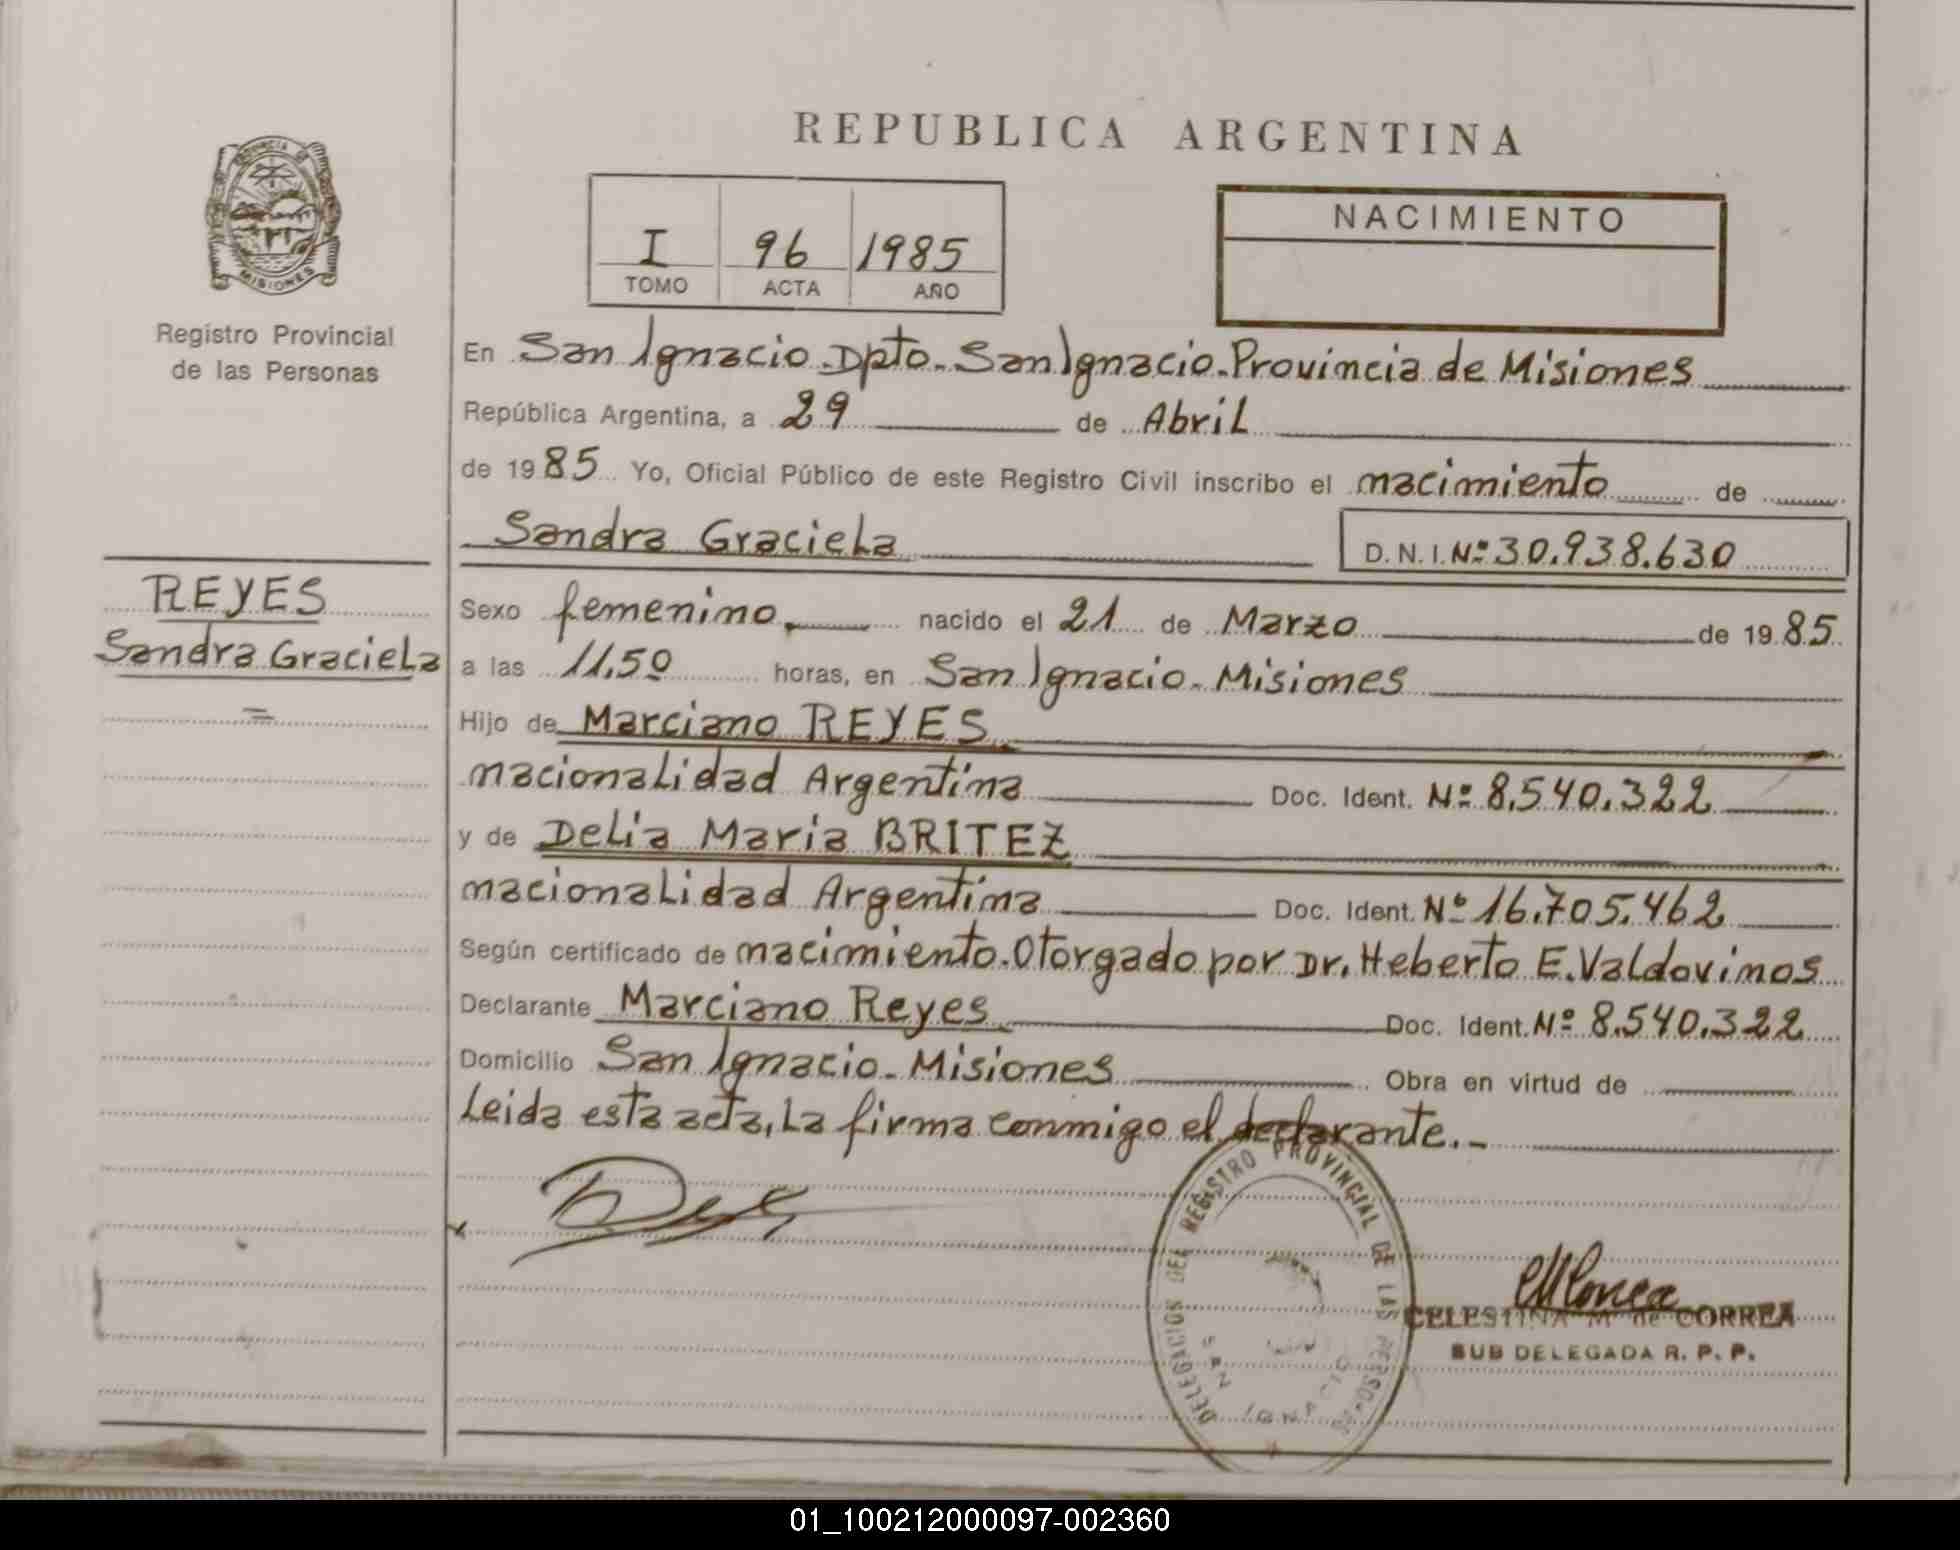 REPUBLICA ARGENTINA
PROVINCIA DE
MISIONES
Registro Provincial
de las Personas
I 96 1985
TOMO ACTA AÑO
NACIMIENTO
En San Ignacio. Dpto. San Ignacio. Provincia de Misiones
República Argentina, a 29 de Abril
de 1985 Yo, Oficial Público de este Registro Civil inscribo el nacimiento de
Sandra Graciela D.N.I. Nº 30.938.630
REYES
Sandra Graciela
Sexo femenino, nacido el 21 de Marzo de 1985
a las 11,50 horas, en San Ignacio. Misiones
Hijo de Marciano REYES
nacionalidad Argentina Doc. Ident. Nº 8.540.322
y de Delia Maria BRITEZ
nacionalidad Argentina Doc. Ident. Nº 16.705.462
Según certificado de nacimiento. Otorgado por Dr. Heberto E. Valdovinos
Declarante Marciano Reyes Doc. Ident. Nº 8.540.322
Domicilio San Ignacio. Misiones Obra en virtud de
Leida esta acta, la firma conmigo el declarante.-
REGISTRO PROVINCIAL DE LAS
SAN IGNACIO
CELESTINA M. de CORREA
SUB DELEGADA R. P. P.
01_100212000097-002360